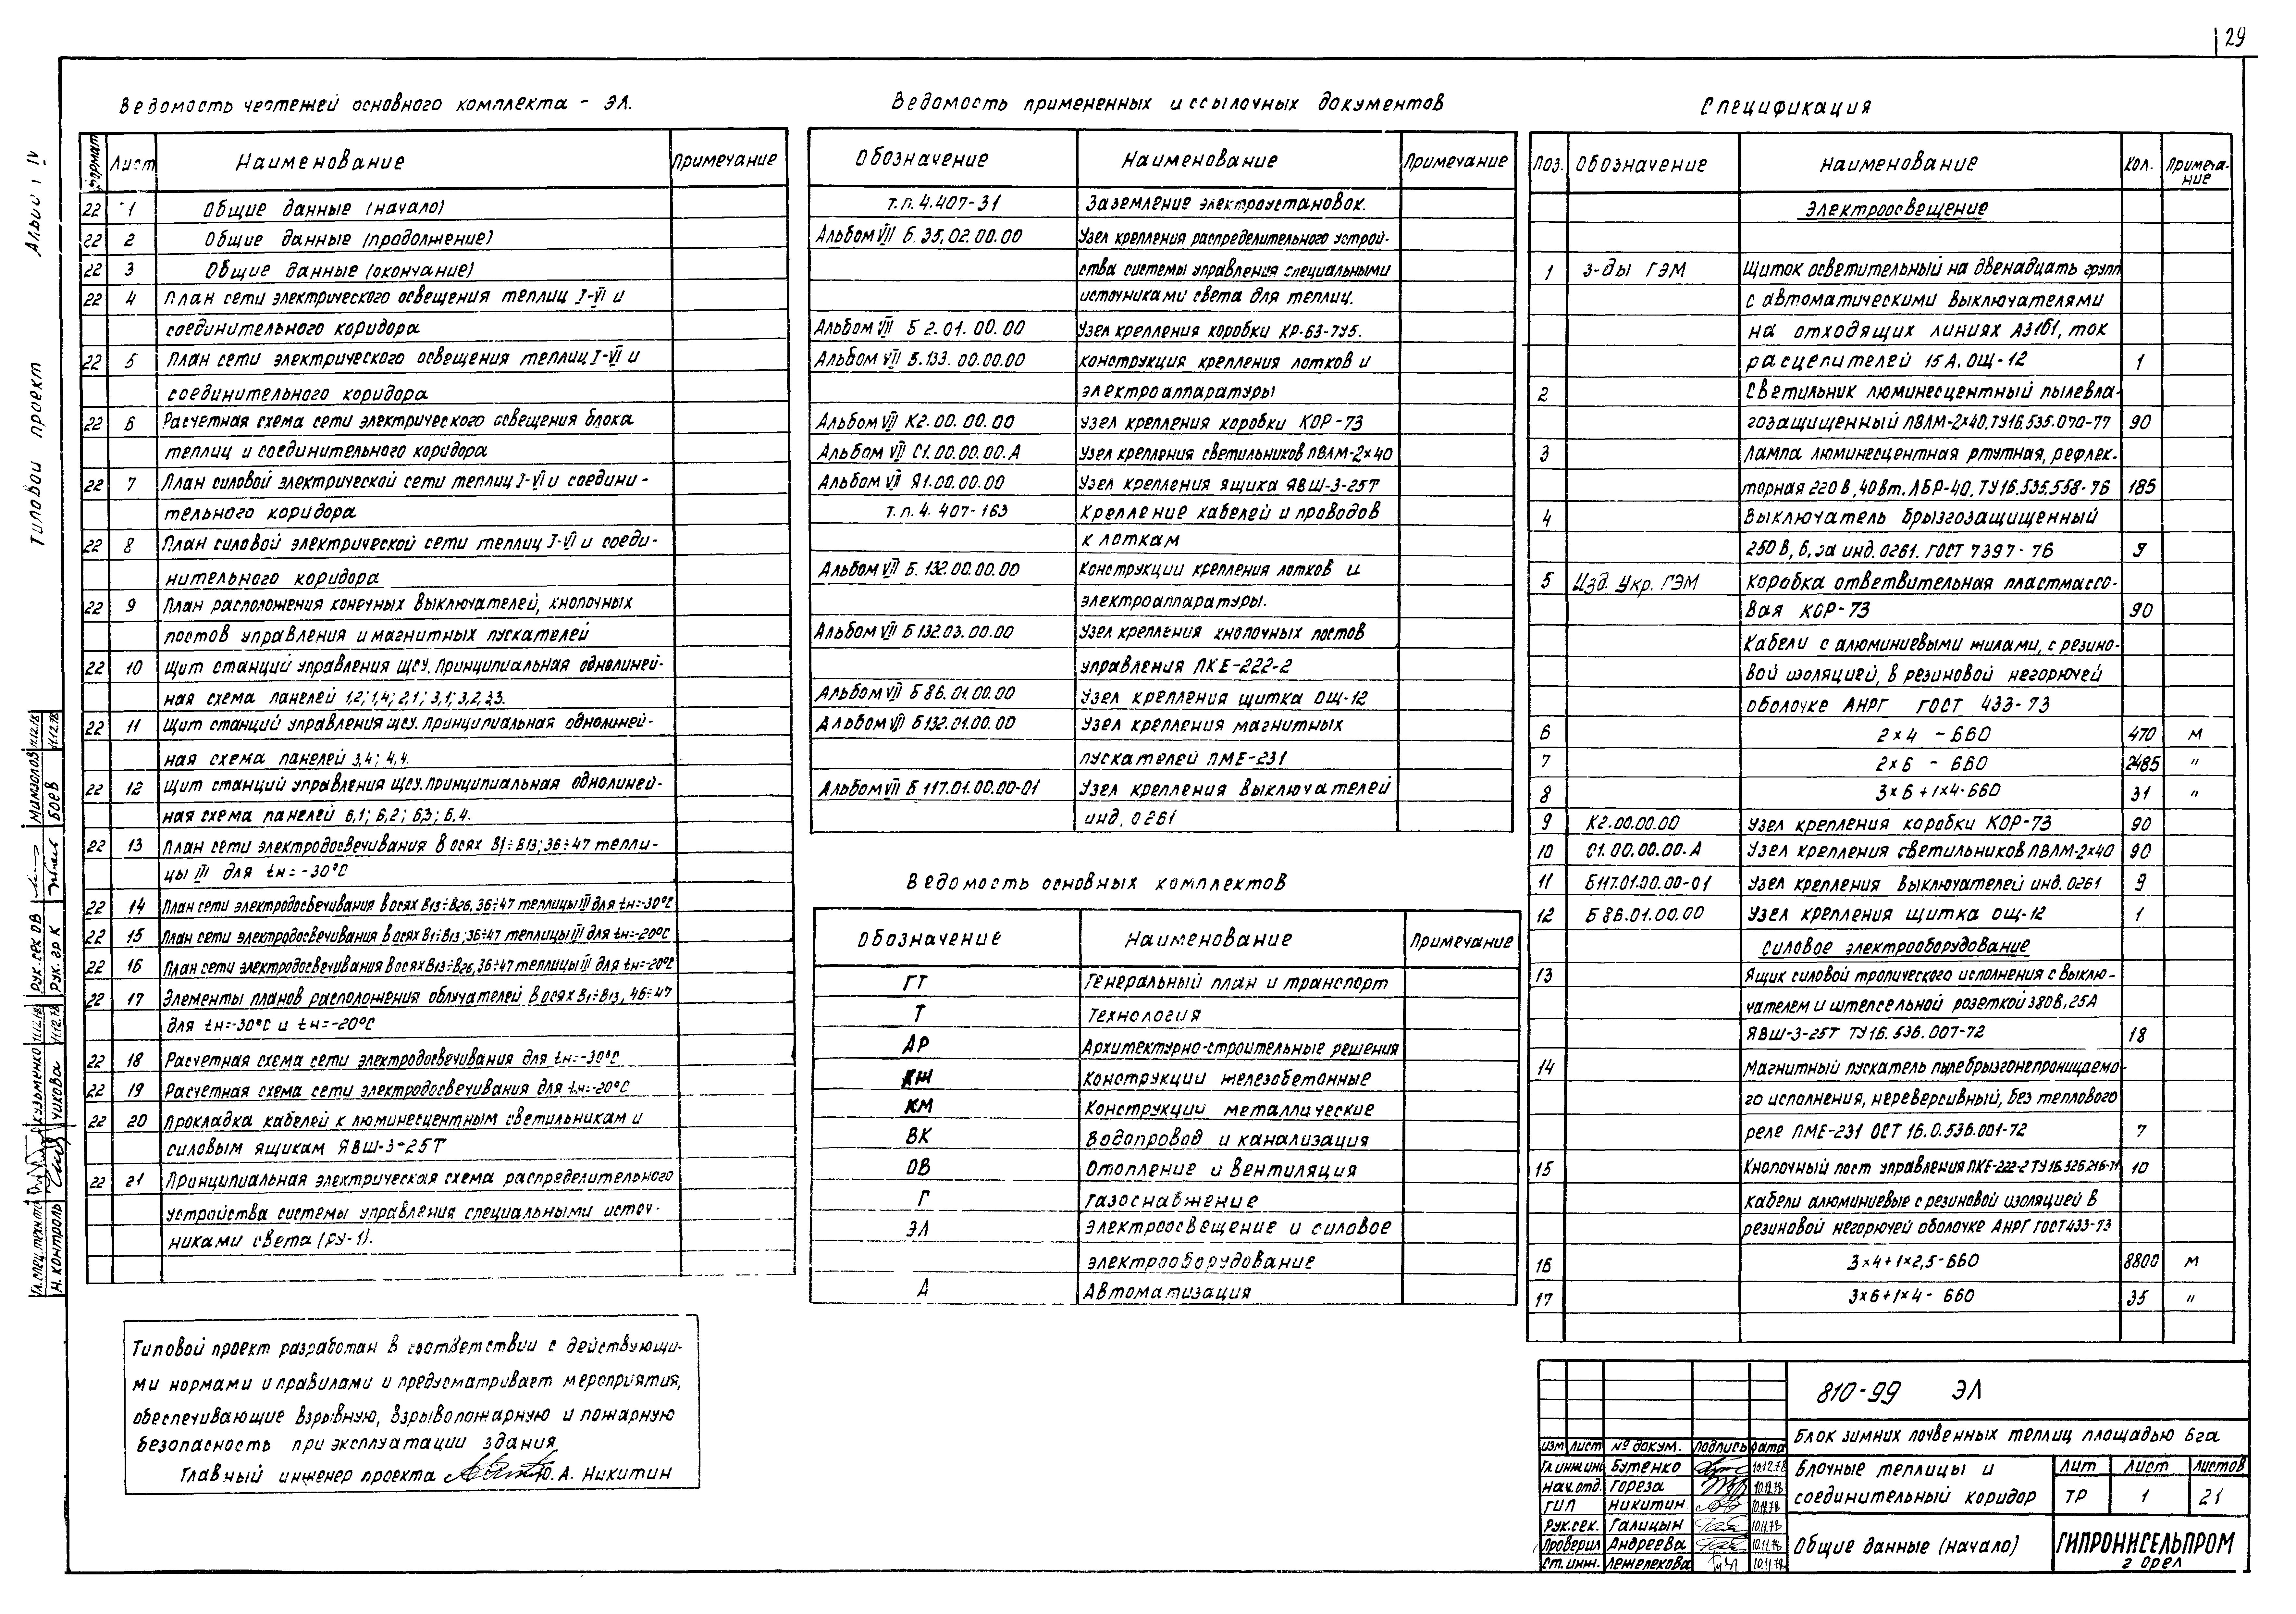 29
Альбом IV
Типовой проект
Ведомость чертежей основного комплекта - ЭЛ.
Формат Лист Наименование Примечание
22 1 Общие данные (начало)
22 2 Общие данные (продолжение)
22 3 Общие данные (окончание)
22 4 План сети электрического освещения теплиц I-VI и
соединительного коридора
22 5 План сети электрического освещения теплиц I-VI и
соединительного коридора
22 6 Расчетная схема сети электрического освещения блока
теплиц и соединительного коридора
22 7 План силовой электрической сети теплиц I-VI и соедини-
тельного коридора
22 8 План силовой электрической сети теплиц I-VI и соеди-
нительного коридора
22 9 План расположения конечных выключателей, кнопочных
постов управления и магнитных пускателей
22 10 Щит станций управления ЩСУ. Принципиальная однолиней-
ная схема панелей 1,2; 1,4; 2,1; 3,1; 3,2, 3,3.
22 11 Щит станций управления ЩСУ. Принципиальная однолиней-
ная схема панелей 3,4; 4,4.
22 12 Щит станций управления ЩСУ. Принципиальная однолиней-
ная схема панелей 6,1; 6,2; 6,3; 6,4.
22 13 План сети электродосвечивания в осях В1÷В13; 36÷47 тепли-
цы III для tн=-30°С
22 14 План сети электродосвечивания в осях В13÷В26, 36÷47 теплицы III для tн=-30°С
22 15 План сети электродосвечивания в осях В1÷В13; 36÷47 теплицы III для tн=-20°С
22 16 План сети электродосвечивания в осях В13÷В26, 36÷47 теплицы III для tн=-20°С
22 17 Элементы планов расположения облучателей в осях В1÷В13, 46÷47
для tн=-30°С и tн=-20°С
22 18 Расчетная схема сети электродосвечивания для tн=-30°С
22 19 Расчетная схема сети электродосвечивания для tн=-20°С
22 20 Прокладка кабелей к люминесцентным светильникам и
силовым ящикам ЯВШ-3-25Т
22 21 Принципиальная электрическая схема распределительного
устройства системы управления специальными источ-
никами света (РУ-1).
Типовой проект разработан в соответствии с действующи-
ми нормами и правилами и предусматривает мероприятия,
обеспечивающие взрывную, взрывопожарную и пожарную
безопасность при эксплуатации здания
Главный инженер проекта Ю.А. Никитин
Ведомость примененных и ссылочных документов
Обозначение Наименование Примечание
т.п. 4.407-31 Заземление электроустановок.
Альбом VII Б.35.02.00.00 Узел крепления распределительного устрой-
ства системы управления специальными
источниками света для теплиц.
Альбом VII Б 2.01.00.00 Узел крепления коробки КР-63-7У5.
Альбом VII Б.133.00.00.00 Конструкция крепления лотков и
электроаппаратуры
Альбом VII К2.00.00.00 Узел крепления коробки КОР-73
Альбом VII С1.00.00.00.А Узел крепления светильников ПВЛМ-2×40
Альбом VII Я1.00.00.00 Узел крепления ящика ЯВШ-3-25Т
т.п. 4.407-163 Крепление кабелей и проводов
к лоткам
Альбом VII Б.132.00.00.00 Конструкции крепления лотков и
электроаппаратуры.
Альбом VII Б132.03.00.00 Узел крепления кнопочных постов
управления ПКЕ-222-2
Альбом VII Б 86.01.00.00 Узел крепления щитка ОЩ-12
Альбом VII Б132.01.00.00 Узел крепления магнитных
пускателей ПМЕ-231
Альбом VII Б 117.01.00.00-01 Узел крепления выключателей
инд. 0261
Ведомость основных комплектов
Обозначение Наименование Примечание
ГТ Генеральный план и транспорт
Т Технология
АР Архитектурно-строительные решения
КЖ Конструкции железобетонные
КМ Конструкции металлические
ВК Водопровод и канализация
ОВ Отопление и вентиляция
Г Газоснабжение
ЭЛ Электроосвещение и силовое
электрооборудование
А Автоматизация
Спецификация
Поз. Обозначение Наименование Кол. Примеча-
ние
Электроосвещение
1 з-ды ГЭМ Щиток осветительный на двенадцать групп
с автоматическими выключателями
на отходящих линиях А3161, ток
расцепителей 15 А, ОЩ-12 1
2 Светильник люминесцентный пылевла-
гозащищенный ПВЛМ-2×40, ТУ16.535.070-77 90
3 Лампа люминесцентная ртутная, рефлек-
торная 220 в, 40 вт. ЛБР-40, ТУ16.535.558-76 185
4 Выключатель брызгозащищенный
250 В, 6,3а инд. 0261. ГОСТ 7397-76 9
5 Изд. Укр. ГЭМ Коробка ответвительная пластмассо-
вая КОР-73 90
Кабели с алюминиевыми жилами, с резино-
вой изоляцией, в резиновой негорючей
оболочке АНРГ ГОСТ 433-73
6 2×4 - 660 470 м
7 2×6 - 660 2485 "
8 3×6+1×4-660 31 "
9 К2.00.00.00 Узел крепления коробки КОР-73 90
10 С1.00.00.00.А Узел крепления светильников ПВЛМ-2×40 90
11 Б117.01.00.00-01 Узел крепления выключателей инд. 0261 9
12 Б 86.01.00.00 Узел крепления щитка ОЩ-12 1
Силовое электрооборудование
13 Ящик силовой тропического исполнения с выклю-
чателем и штепсельной розеткой 380В, 25А
ЯВШ-3-25Т ТУ16.536.007-72 18
14 Магнитный пускатель пылебрызгонепроницаемо-
го исполнения, нереверсивный, без теплового
реле ПМЕ-231 ОСТ 16.0.536.001-72 7
15 Кнопочный пост управления ПКЕ-222-2 ТУ16.526.216-71 10
Кабели алюминиевые с резиновой изоляцией в
резиновой негорючей оболочке АНРГ ГОСТ 433-73
16 3×4+1×2,5-660 8800 м
17 3×6+1×4-660 35 "
810-99 ЭЛ
Блок зимних почвенных теплиц площадью 6га
Изм Лист № докум. Подпись Дата
Гл.инж.ин Бутенко 10.12.78
Нач.отд. Гореза 10.12.78
ГИП Никитин 10.11.78
Рук.сек. Галицын 10.11.78
Проверил Андреева 10.11.78
Ст.инж. Лежепекова 10.11.78
Блочные теплицы и
соединительный коридор
Лит Лист Листов
ТР 1 21
Общие данные (начало)
ГИПРОНИСЕЛЬПРОМ
г Орел
Гл.спец.техн.отд Кузьменко 11.12.78 Рук.сек ОВ Мамзолов 11.12.78
Н.контроль Чикова 11.12.78 Рук.гр К Боев 11.12.78